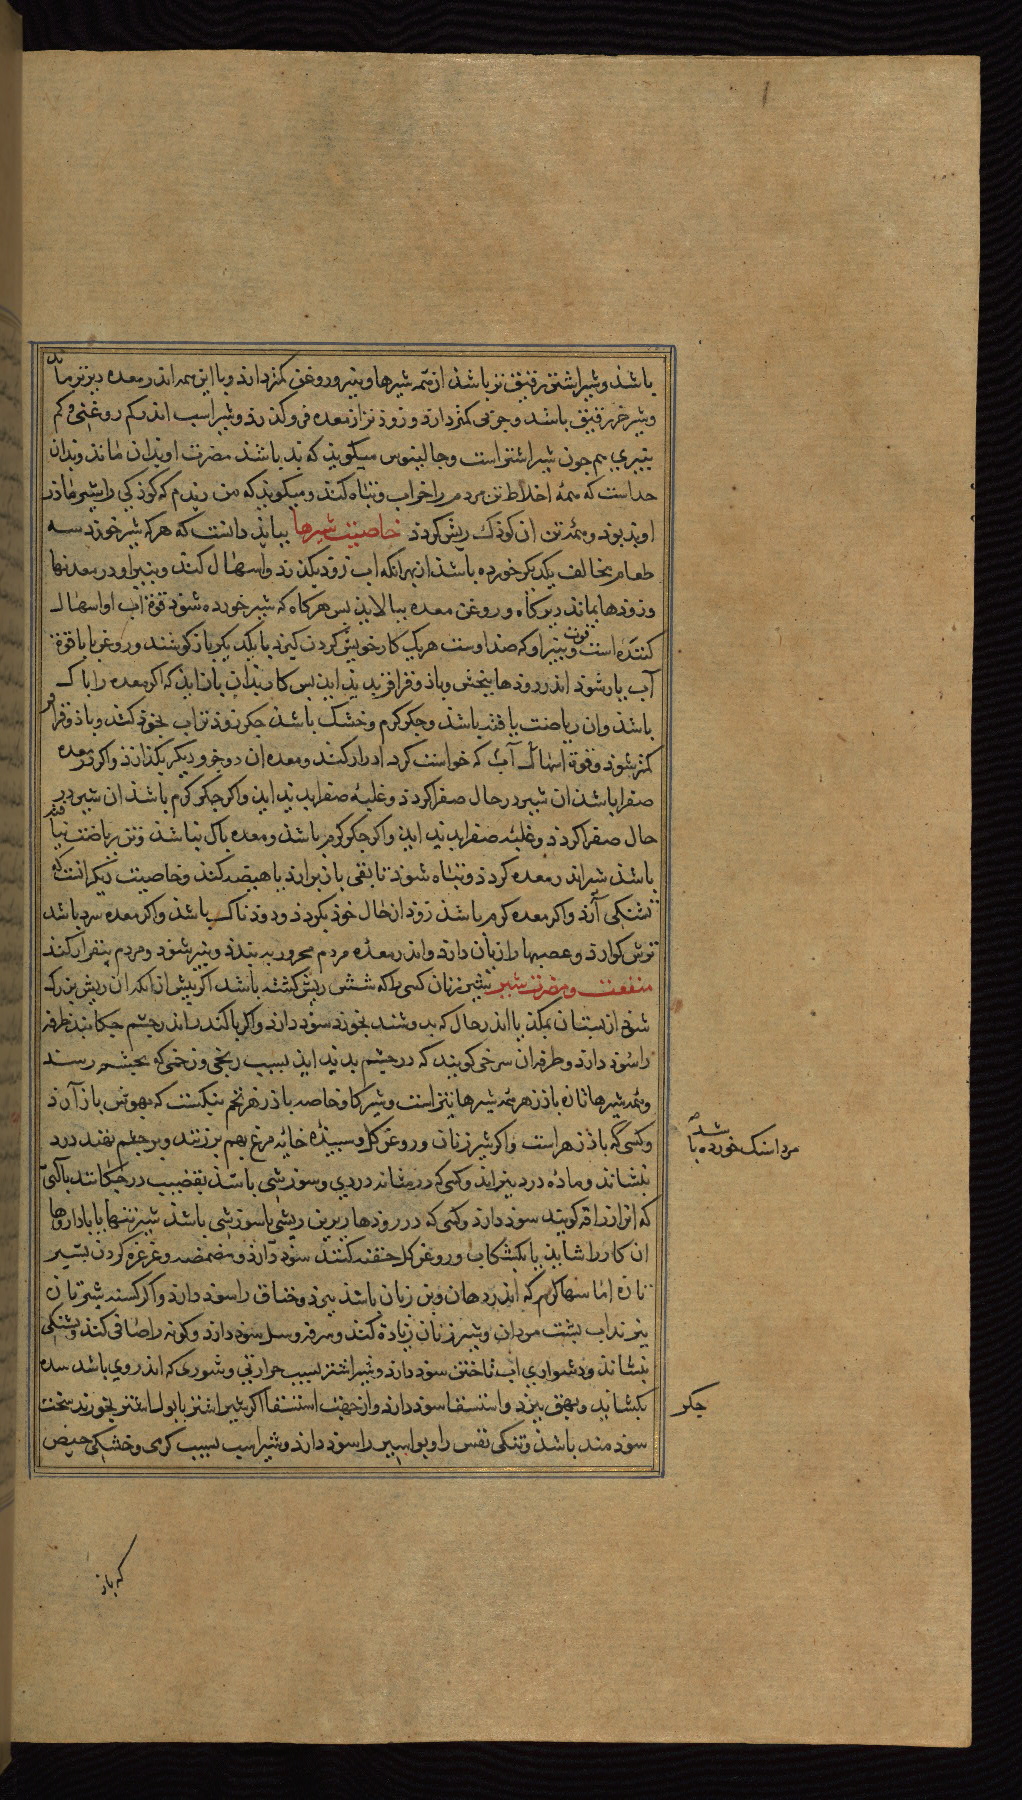 باشذ و شیر اشتر رقیق تر باشذ از همه شیرها و پنیر و روغن کمتر دارذ و با این همه اندر معده دیرتر ماند
و شیر خر رقیق باشد و چربی کمتر دارذ و زوذ تر از معده فرو کذرد و شیر اسب اندر کم روغنی و کم
پنیری هم جون شیر اشتر است و جالینوس میکویذ که بد باشذ مضرت او بدان ماند و بدان
حد است که همهٔ اخلاط تن مردم را خراب و تباه کند و میکویذ که من دیدم که کوذکی را شیر ماذر
او بد بوذ و همه تن ان کوذک ریش کردذ خاصیت شیرها ببایذ دانست که هرکه شیر خورد سه
طعام مخالف یکدیکر خورده باشذ از بهر انکه اب زوذ بکذرد و اسهال کند و پنیر او در معدتها
و روذها بماند دیرکاه و روغن معده بیالایذ بس هرکاه که شیر خورده شوذ قوة اب او اسهال
کننده است و قوت پنیر او که ضد اوست هر یک کار خویش کردن کیرد با یکدیکر باز کوشند و روغن با قوة
آب یار شوذ اندر روذها بنجشی و باذ و قراقر بدید اید بس کار بدان باز اید که اکر معده را باک
باشذ و ان ریاضت یافته باشذ و جکر کرم و خشک باشذ جکر زوذ تر اب بخوذ کشد و باذ و قراقر
کمتر شوذ و قوة اسهال آب که خواست کرد ادرار کند و معده ان دو جزو دیکر بکذارد و اکر در معده
صفرا باشذ ان شیر در حال صفرا کردد و غلبهٔ صفرا بدید اید و اکر جکر کرم باشذ ان شیر در
حال صفرا کردد و غلبه صفرا بدید اید و اکر جکر کرم باشذ و معده باک نباشذ و تن ریاضت نیافته
باشذ شیر اندر معده کردد و تباه شوذ تا بقی باز برارد یا هیضه کند و خاصیت دیکر انست که
تشنکی آرد و اکر معده کرم باشذ زوذ از حال خوذ بکردد و دوذناک باشذ و اکر معده سرد باشد
ترش کوارد و عصبها را زیان دارد و اندر معدهٔ مردم محرور ببندد و پنیر شوذ و مردم بیقرار کند
منفعت و مضرت شیر شیر زنان کسی را که شش ریش کشته باشد اکر بیش از انکه ان ریش بزرک
شوذ از بستان بمکد یا اندر حال که بدوشند بخورد سوذ دارد و اکر باکندر اندر جشم جکانند طرفه
را سوذ دارد و طرفه ان سرخی کویند که در جشم بدید اید بسبب رنجی و زخمی که بجشم رسد
و همه شیرها تازه باذزهر همه شیرها بنتر است و شیر کاو خاصه باذزهر تخم بنکست که بهوش باز آرد
و کسی که باذ زهر است و اکر شیر زنان و روغن کل و سبیدهٔ خایه مرغ بهم برزنند و بر جشم نهند درد
بنشاند و مادهٔ درد ببزاند و کسی که در مثانه دردی و سوزشی باشذ بقضیب در جکانند بآلتی
که انرا زراقه کویند سوذ دارد و کسی که در روذها زیرین ریشی یا سوزشی باشذ شیر تنها یا با داروها
ان کار را شاید یا بکشکاب و روغن کل حقنه کنند سوذ دارد و مضمضه و غرغره کردن بشیر
تازه اماسها کرم که اندر دهان و بن زبان باشذ ببرد و خناق را سوذ دارد و اکر کسی شیر تازه
خورد اب بشت مردان و شیر زنان زیادة کند و سرفه و سل سوذ دارد و کونه را صافی کند و تشنکی
بنشاند و دشواری اب تاختن سوذ دارد و شیر اشتر بسبب حرارتی و شوری که اندر وی باشد سده
بکشاید و بهق ببرد و استسقا سوذ دارد و از جهت استسقا اکر شیر اشتر با بول اشتر بخورند سخت
سوذمند باشذ و تنکی نفس را و بواسیر را سوذ دارد و شیر اسب بسبب کرمی و خشکی حیض
مرداسنک خورده باشد
جکر
که باز